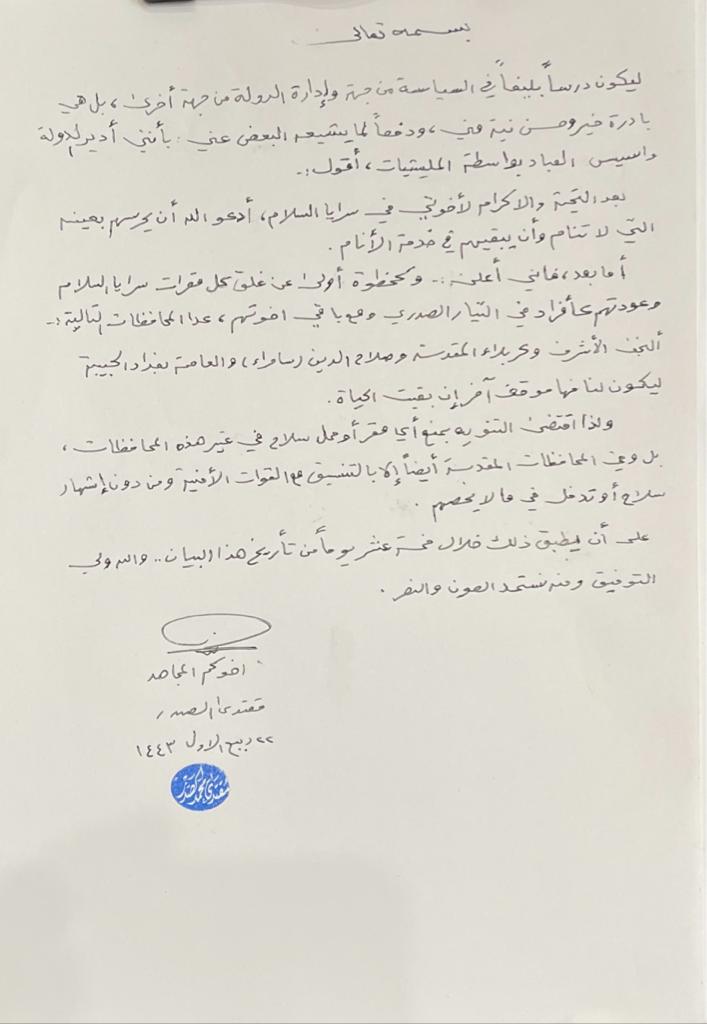 بسمه تعالى
ليكون درساً بليغاً في السياسة من جهة وإدارة الدولة من جهة أخرى، بل هي
بادرة خير وحسن نية مني، ودفعاً لما يشيعه البعض عني: بأنني أدير الدولة
وأسيس العباد بواسطة المليشيات، أقول:-
بعد التحية والاكرام لأخوتي في سرايا السلام، أدعو الله أن يحرسهم بعينه
التي لا تنام وأن يبقيهم في خدمة الأنام.
أما بعد، فإنني أعلن:- وكخطوة أولى عن غلق كل مقرات سرايا السلام
وعودتهم كأفراد في التيار الصدري ومع باقي اخوتهم، عدا المحافظات التالية:-
النجف الأشرف وكربلاء المقدسة وصلاح الدين (سامراء) والعاصمة بغداد الحبيبة
ليكون لنا فيها موقف آخر إن بقيت الحياة.
ولذا اقتضى التنويه بمنع أي مقر أو حمل سلاح في غير هذه المحافظات،
بل وفي المحافظات المقدسة أيضاً إلا بالتنسيق مع القوات الأمنية ومن دون إشهار
سلاح أو تدخل في ما لا يخصهم.
على أن يطبق ذلك خلال خمسة عشر يوماً من تأريخ هذا البيان.. والله ولي
التوفيق ومنه نستمد العون والنصر.
اخوكم المجاهد
مقتدى الصدر
٢٢ ربيع الاول ١٤٤٣
مقتدى محمد الصدر